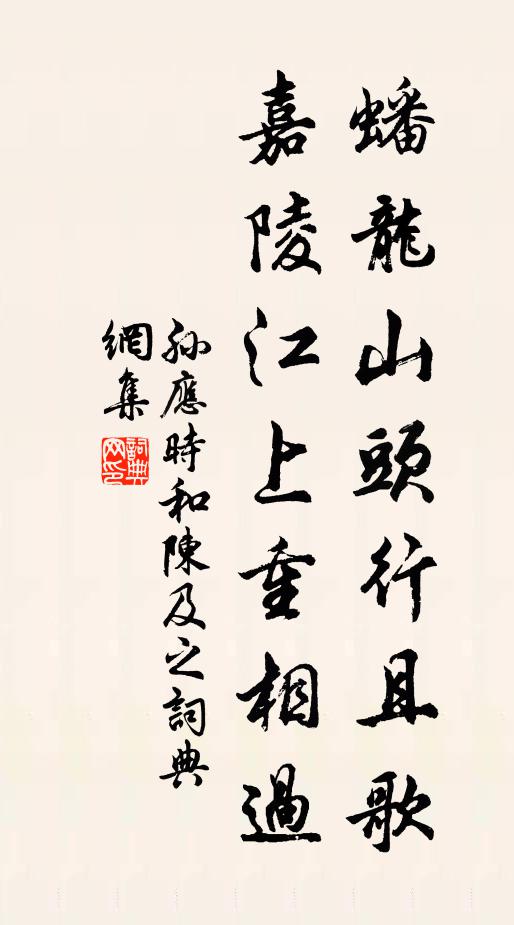 蟠龍山頭行且歌
嘉陵江上重相過
孫應時和陳及之詞典
網集
詞典
网印